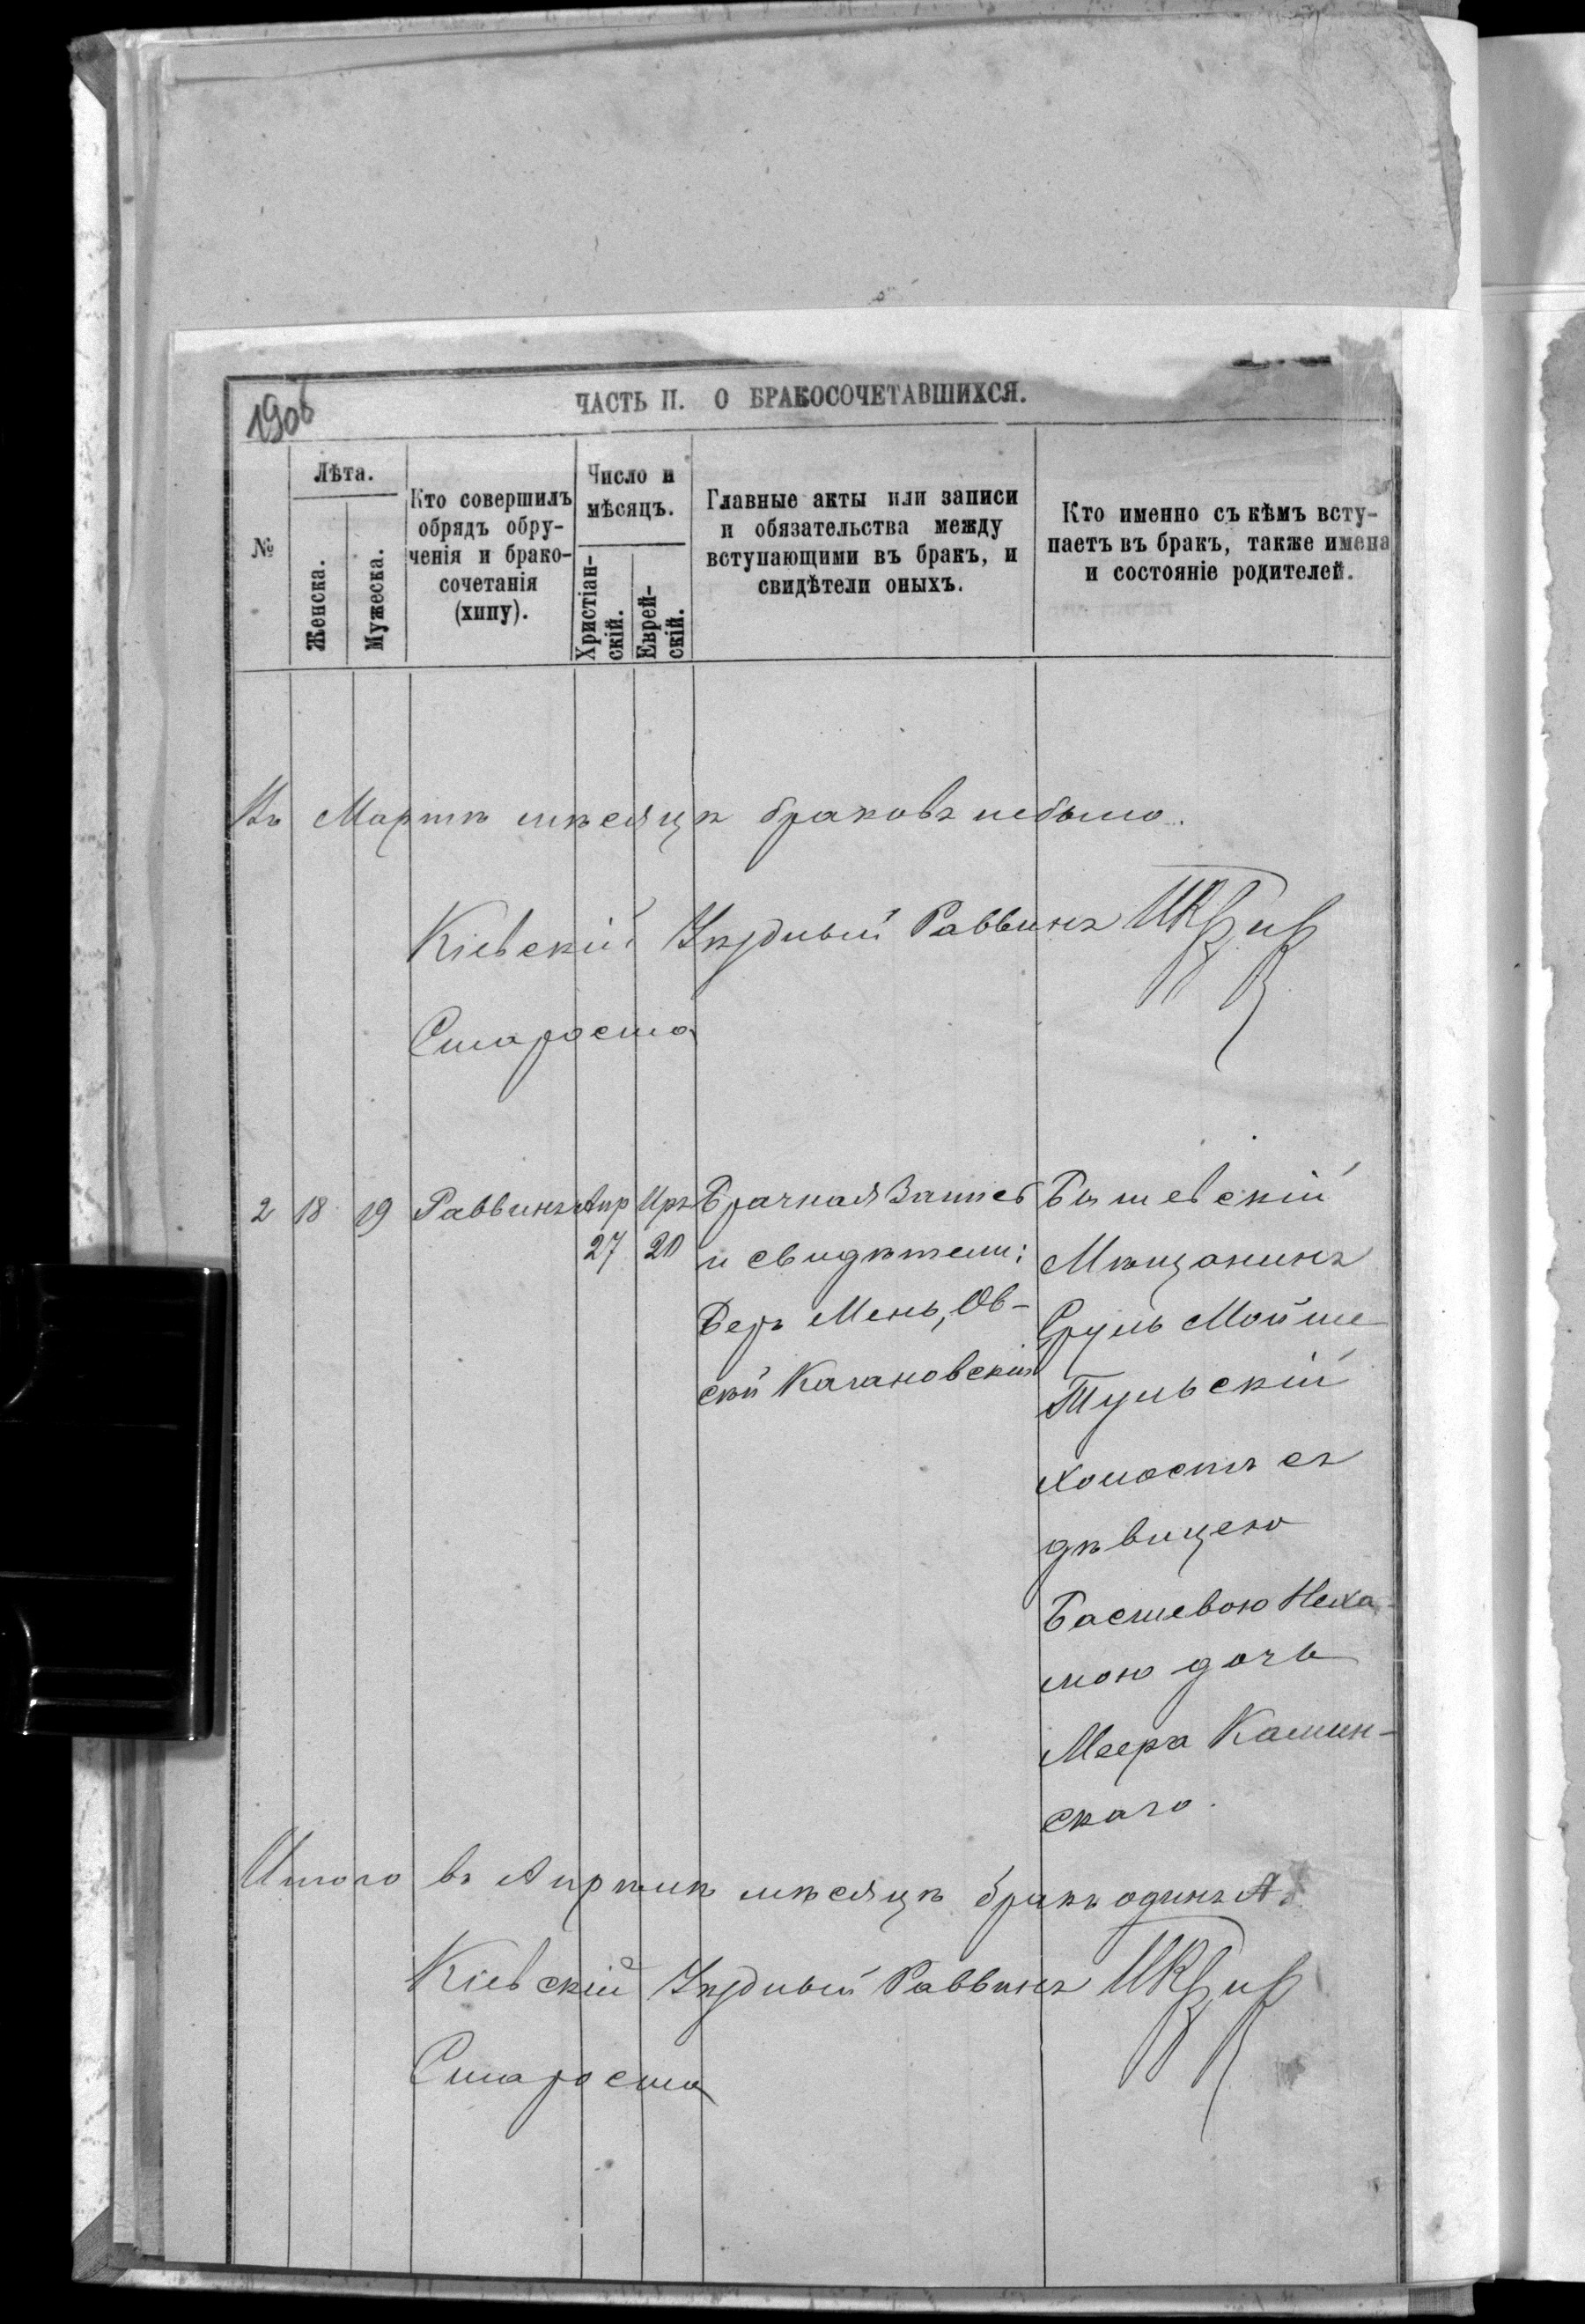 1906
ЧАСТЬ II. О БРАКОСОЧЕТАВШИХСЯ.
№
Лѣта.
Женска.
Мужеска.
Кто совершилъ
обрядъ обру-
ченія и брако-
сочетанія
(хипу).
Число и
мѣсяцъ.
Христіан-
скій.
Еврей-
скій.
Главные акты или записи
и обязательства между
вступающими въ бракъ, и
свидѣтели оныхъ.
Кто именно съ кѣмъ всту-
паетъ въ бракъ, также имена
и состояніе родителей.
Въ Мартѣ мѣсяцѣ браковъ небыло.
Кіевскій Уѣздный Раввинъ
Староста
2 18 19 Раввинъ
Апр
27
Іръ
20
Брачная Запись
и свидѣтели:
Беръ Мень, Ов-
сѣй Кагановскій
Бышевскій
Мѣщанинъ
Сруль Мойше
Тульскій
холостъ съ
дѣвицею
Басшевою Неха-
мою дочь
Меера Камин-
скаго.
Итого въ Апрѣлѣ мѣсяцѣ бракъ одинъ
Кіевскій Уѣздный Раввинъ
Староста